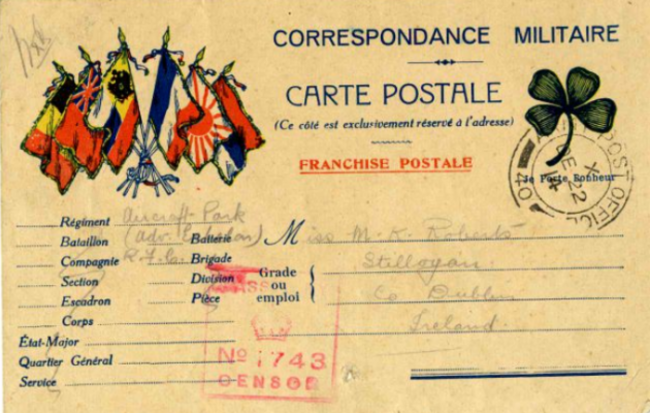 CORRESPONDANCE MILITAIRE
CARTE POSTALE
(Ce côté est exclusivement réservé à l'adresse)
FRANCHISE POSTALE
Je Porte Bonheur
ARMY POST OFFICE
X
DE 22
14
40
Régiment Aircraft Park
Bataillon (adv. ) Batterie
Compagnie R.F.C. Brigade
Section Division
Escadron Pièce
Corps
État-Major
Quartier Général
Service
Grade
ou
emploi
Miss M. K. Roberts
Stillorgan
Co Dublin
Ireland
PASSED
No 1743
CENSOR